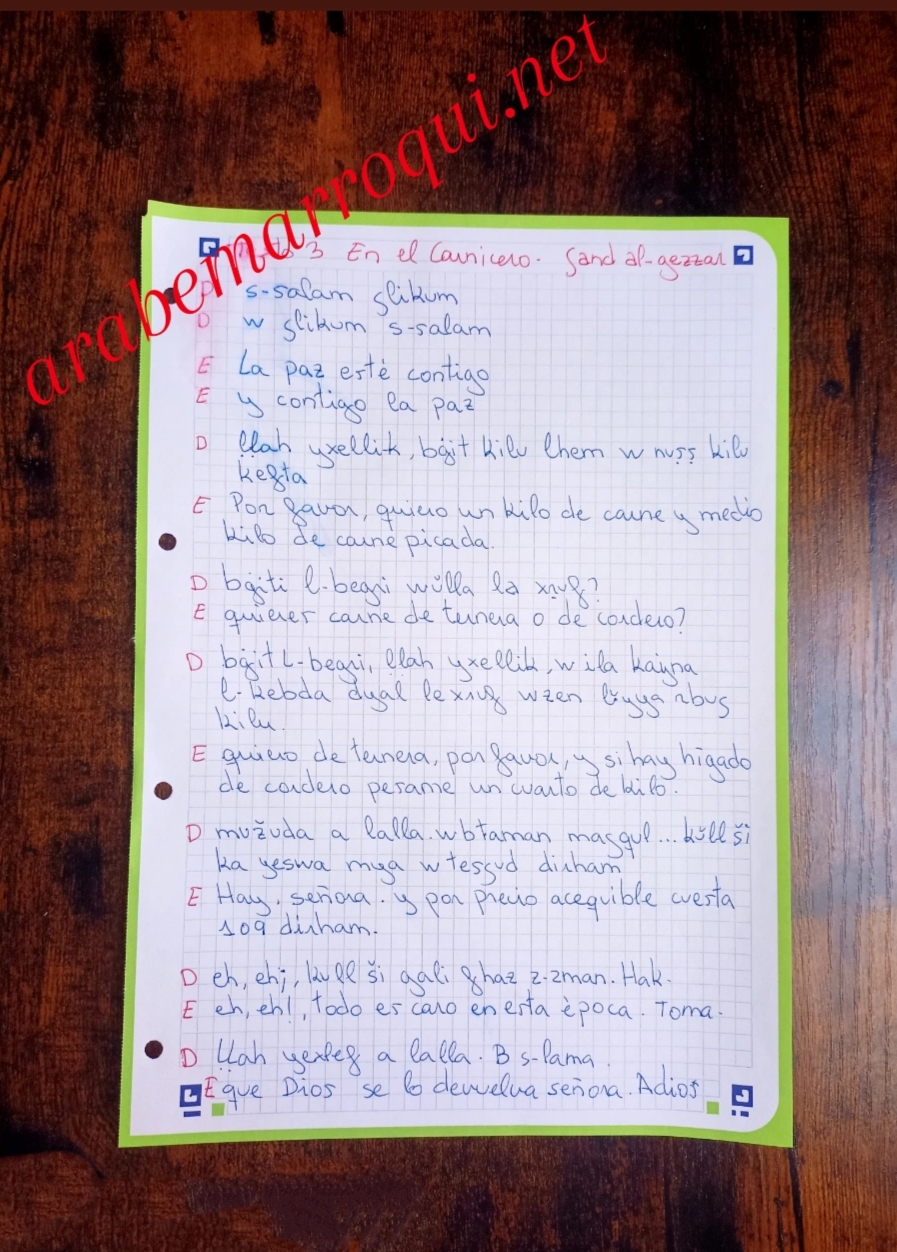 arabemarroqui.net
3 En el Carnicero. Ɛand al-gezzar
D s-salam ɛlikum
D w ɛlikum s-salam
E La paz esté contigo
E y contigo la paz
D llah yxellik, bġit kilu lhem w nuṣṣ kilu
kefta
E Por favor, quiero un kilo de carne y medio
kilo de carne picada.
D bġiti l-begri wŭlla la xruf?
E quieres carne de ternera o de cordero?
D bġit l-begri, llah yxellik, w ila kayna
l-kebda dyal lexruf wzen liyya rbuɛ
kilu.
E quiero de ternera, por favor, y si hay hígado
de cordero pesame un cuarto de kilo.
D mužuda a lalla. wbtaman maɛqul... kŭll ši
ka yeswa mya w tesɛud dirham
E Hay, señora. y por precio acequible cuesta
109 dirham.
D eh, eh¡, kull ši gali fhaz z-zman. Hak.
E eh, eh!, todo es caro en esta època. Toma.
D Llah yexlef a lalla. B s-lama.
E que Dios se lo devuelva señora. Adios